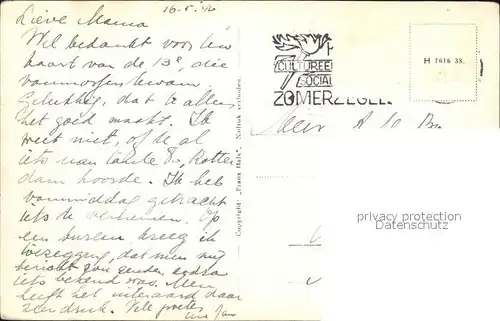 16-5-'46
Lieve Mama
Wel bedankt voor Uw
kaart van de 13e, die
vanmorgen kwam.
Gelukkig, dat U alles
het goed maakt. Ik
weet niet, of U al
iets van tante To, Rotter
dam hoorde. Ik heb
vanmiddag getracht
iets te vernemen. Op
een bureau kreeg ik
toezegging, dat men mij
bericht zou zenden, zodra
iets bekend was. Men
heeft het uiteraard daar
zeer druk. Vele groeten
Uw Jan
Copyright: „Frans Hals". Nadruk verboden.
CULTUREEL
SOCIAAL
ZOMERZEGEL
H 7616 38.
privacy protection
Datenschutz